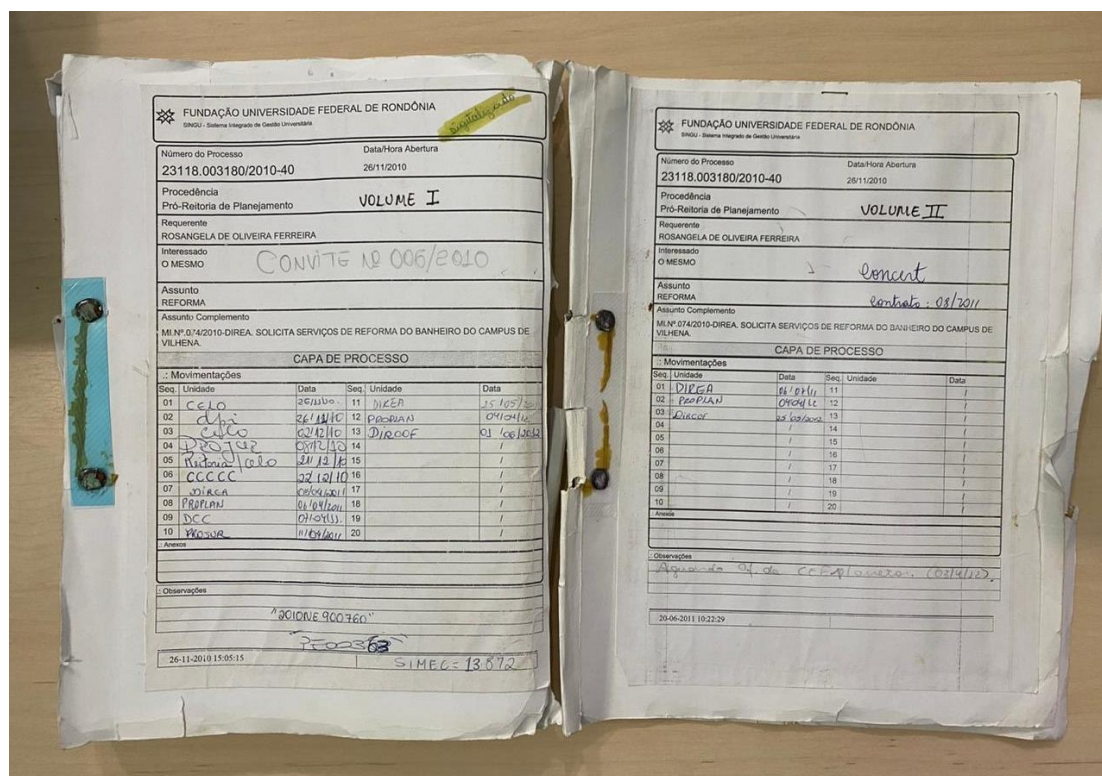 digitalizado
FUNDAÇÃO UNIVERSIDADE FEDERAL DE RONDÔNIA
SINGU - Sistema Integrado de Gestão Universitária
Número do Processo Data/Hora Abertura
23118.003180/2010-40 26/11/2010
Procedência
Pró-Reitoria de Planejamento VOLUME I
Requerente
ROSANGELA DE OLIVEIRA FERREIRA
Interessado
O MESMO CONVITE Nº 006/2010
Assunto
REFORMA
Assunto Complemento
MI.Nº.074/2010-DIREA. SOLICITA SERVIÇOS DE REFORMA DO BANHEIRO DO CAMPUS DE
VILHENA.
CAPA DE PROCESSO
.: Movimentações
Seq. Unidade Data Seq. Unidade Data
01 CELO 11 DIREA
02 12 PROPLAN 04/04/12
03 02/12/10 13 DIROOF 01/06/2012
04 PROJUR 14 /
05 Reitoria/celo 21/12/10 15 /
06 CCCCC 22/12/10 16 /
07 DIREA 17 /
08 PROPLAN 06/04/2011 18 /
09 DCC 19 /
10 PROJUR 11/04/2011 20 /
.: Anexos
.: Observações
"2010NE900760"
26-11-2010 15:05:15 SIMEC = 13872
FUNDAÇÃO UNIVERSIDADE FEDERAL DE RONDÔNIA
SINGU - Sistema Integrado de Gestão Universitária
Número do Processo Data/Hora Abertura
23118.003180/2010-40 26/11/2010
Procedência
Pró-Reitoria de Planejamento VOLUME II
Requerente
ROSANGELA DE OLIVEIRA FERREIRA
Interessado
O MESMO Concert
Assunto
REFORMA Contrato: 08/2011
Assunto Complemento
MI.Nº.074/2010-DIREA. SOLICITA SERVIÇOS DE REFORMA DO BANHEIRO DO CAMPUS DE
VILHENA.
CAPA DE PROCESSO
.: Movimentações
Seq. Unidade Data Seq. Unidade Data
01 DIREA 11 /
02 PROPLAN 04/04/12 12 /
03 Dircof 13 /
04 / 14 /
05 / 15 /
06 / 16 /
07 / 17 /
08 / 18 /
09 / 19 /
10 / 20 /
.: Anexos
.: Observações
Aguardo Of. da (03/4/12).
20-06-2011 10:22:29